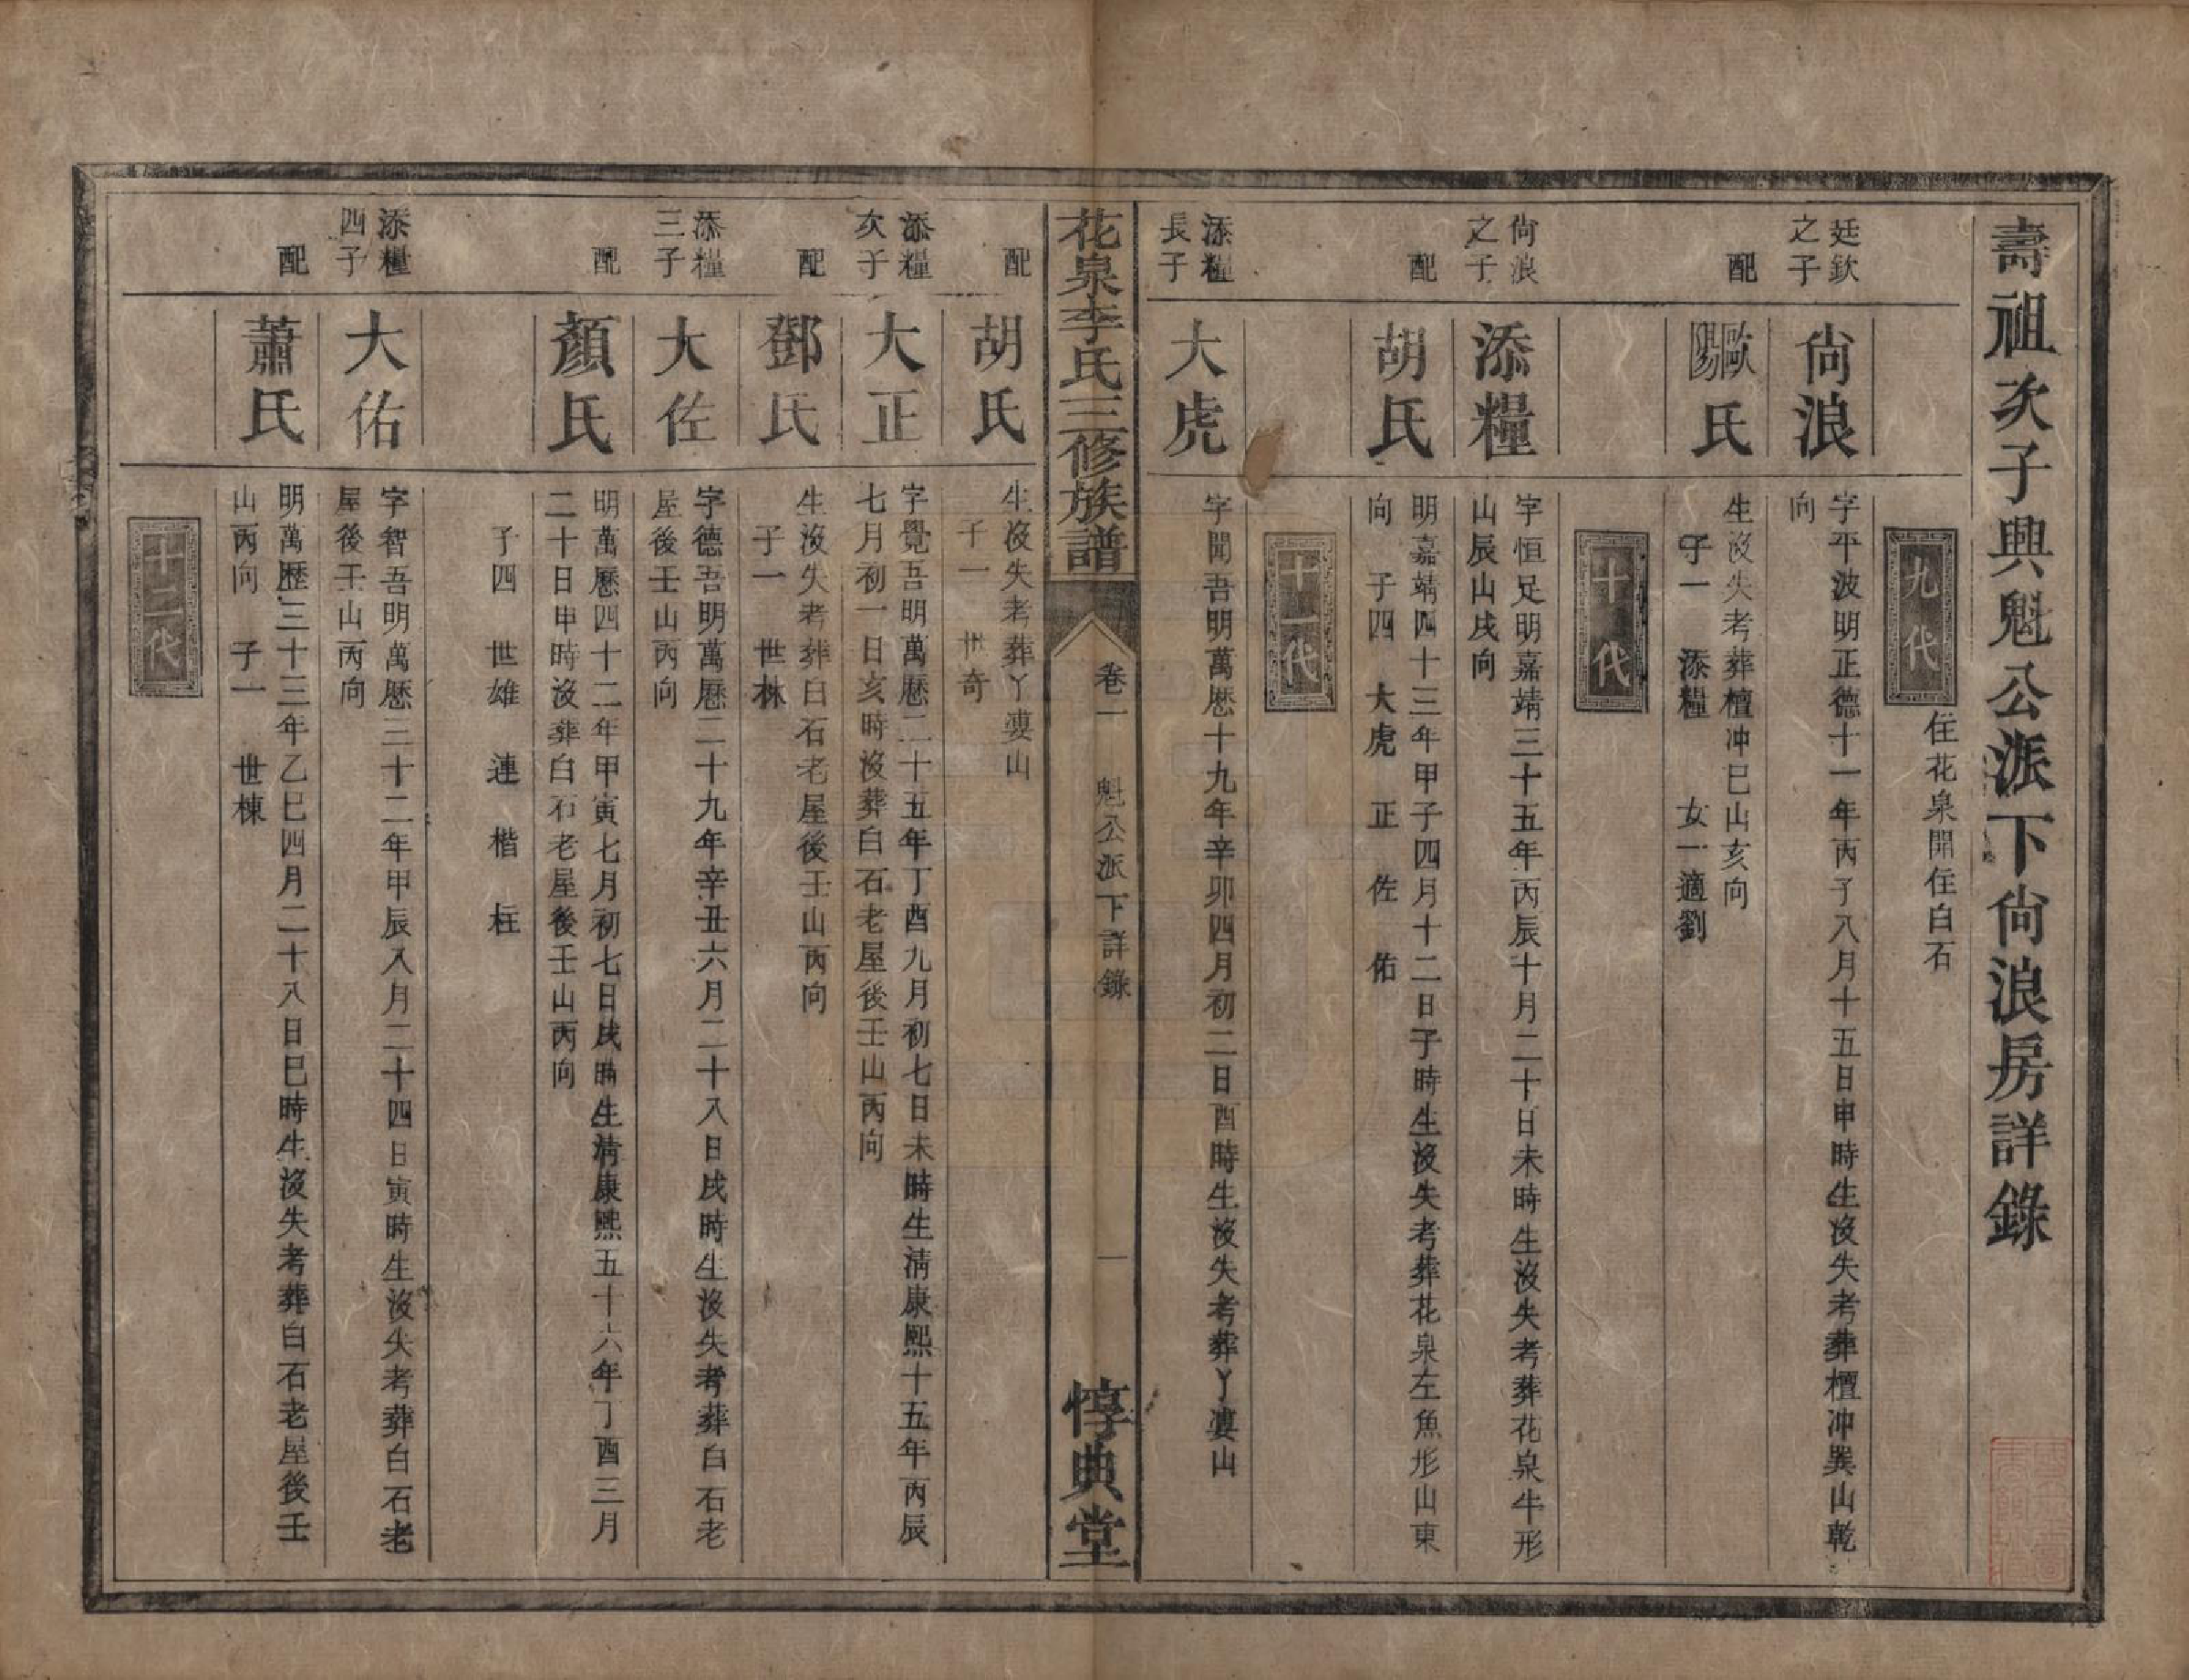 壽祖次子興魁公派下尙浪房詳錄
九代
住花泉開住白石
廷欽之子
尙浪
字平波明正德十一年丙子八月十五日申時生沒失考葬檀冲巽山乾
向
配
歐陽氏
生沒失考葬檀冲巳山亥向
子一 添糧 女一適劉
十代
尙浪之子
添糧
字恒足明嘉靖三十五年丙辰十月二十日未時生沒失考葬花泉牛形
山辰山戌向
配
胡氏
明嘉靖四十三年甲子四月十二日子時生沒失考葬花泉左魚形山東
向 子四 大虎 正 佐 佑
十一代
添糧長子
大虎
字開吾明萬歷十九年辛卯四月初二日酉時生沒失考葬丫婁山
花泉李氏三修族譜
卷一 魁公派下詳錄
一
惇典堂
配
胡氏
生沒失考葬丫婁山
子一 世奇
添糧次子
大正
字覺吾明萬歷二十五年丁酉九月初七日未時生淸康熙十五年丙辰
七月初一日亥時沒葬白石老屋後壬山丙向
配
鄧氏
生沒失考葬白石老屋後壬山丙向
子一 世林
添糧三子
大佐
字德吾明萬歷二十九年辛丑六月二十八日戌時生沒失考葬白石老
屋後壬山丙向
配
顏氏
明萬歷四十二年甲寅七月初七日戌時生淸康熙五十六年丁酉三月
二十日申時沒葬白石老屋後壬山丙向
子四 世雄 連 楷 柱
添糧四子
大佑
字智吾明萬歷三十二年甲辰八月二十四日寅時生沒失考葬白石老
屋後壬山丙向
配
蕭氏
明萬歷三十三年乙巳四月二十八日巳時生沒失考葬白石老屋後壬
山丙向 子一 世棟
十二代